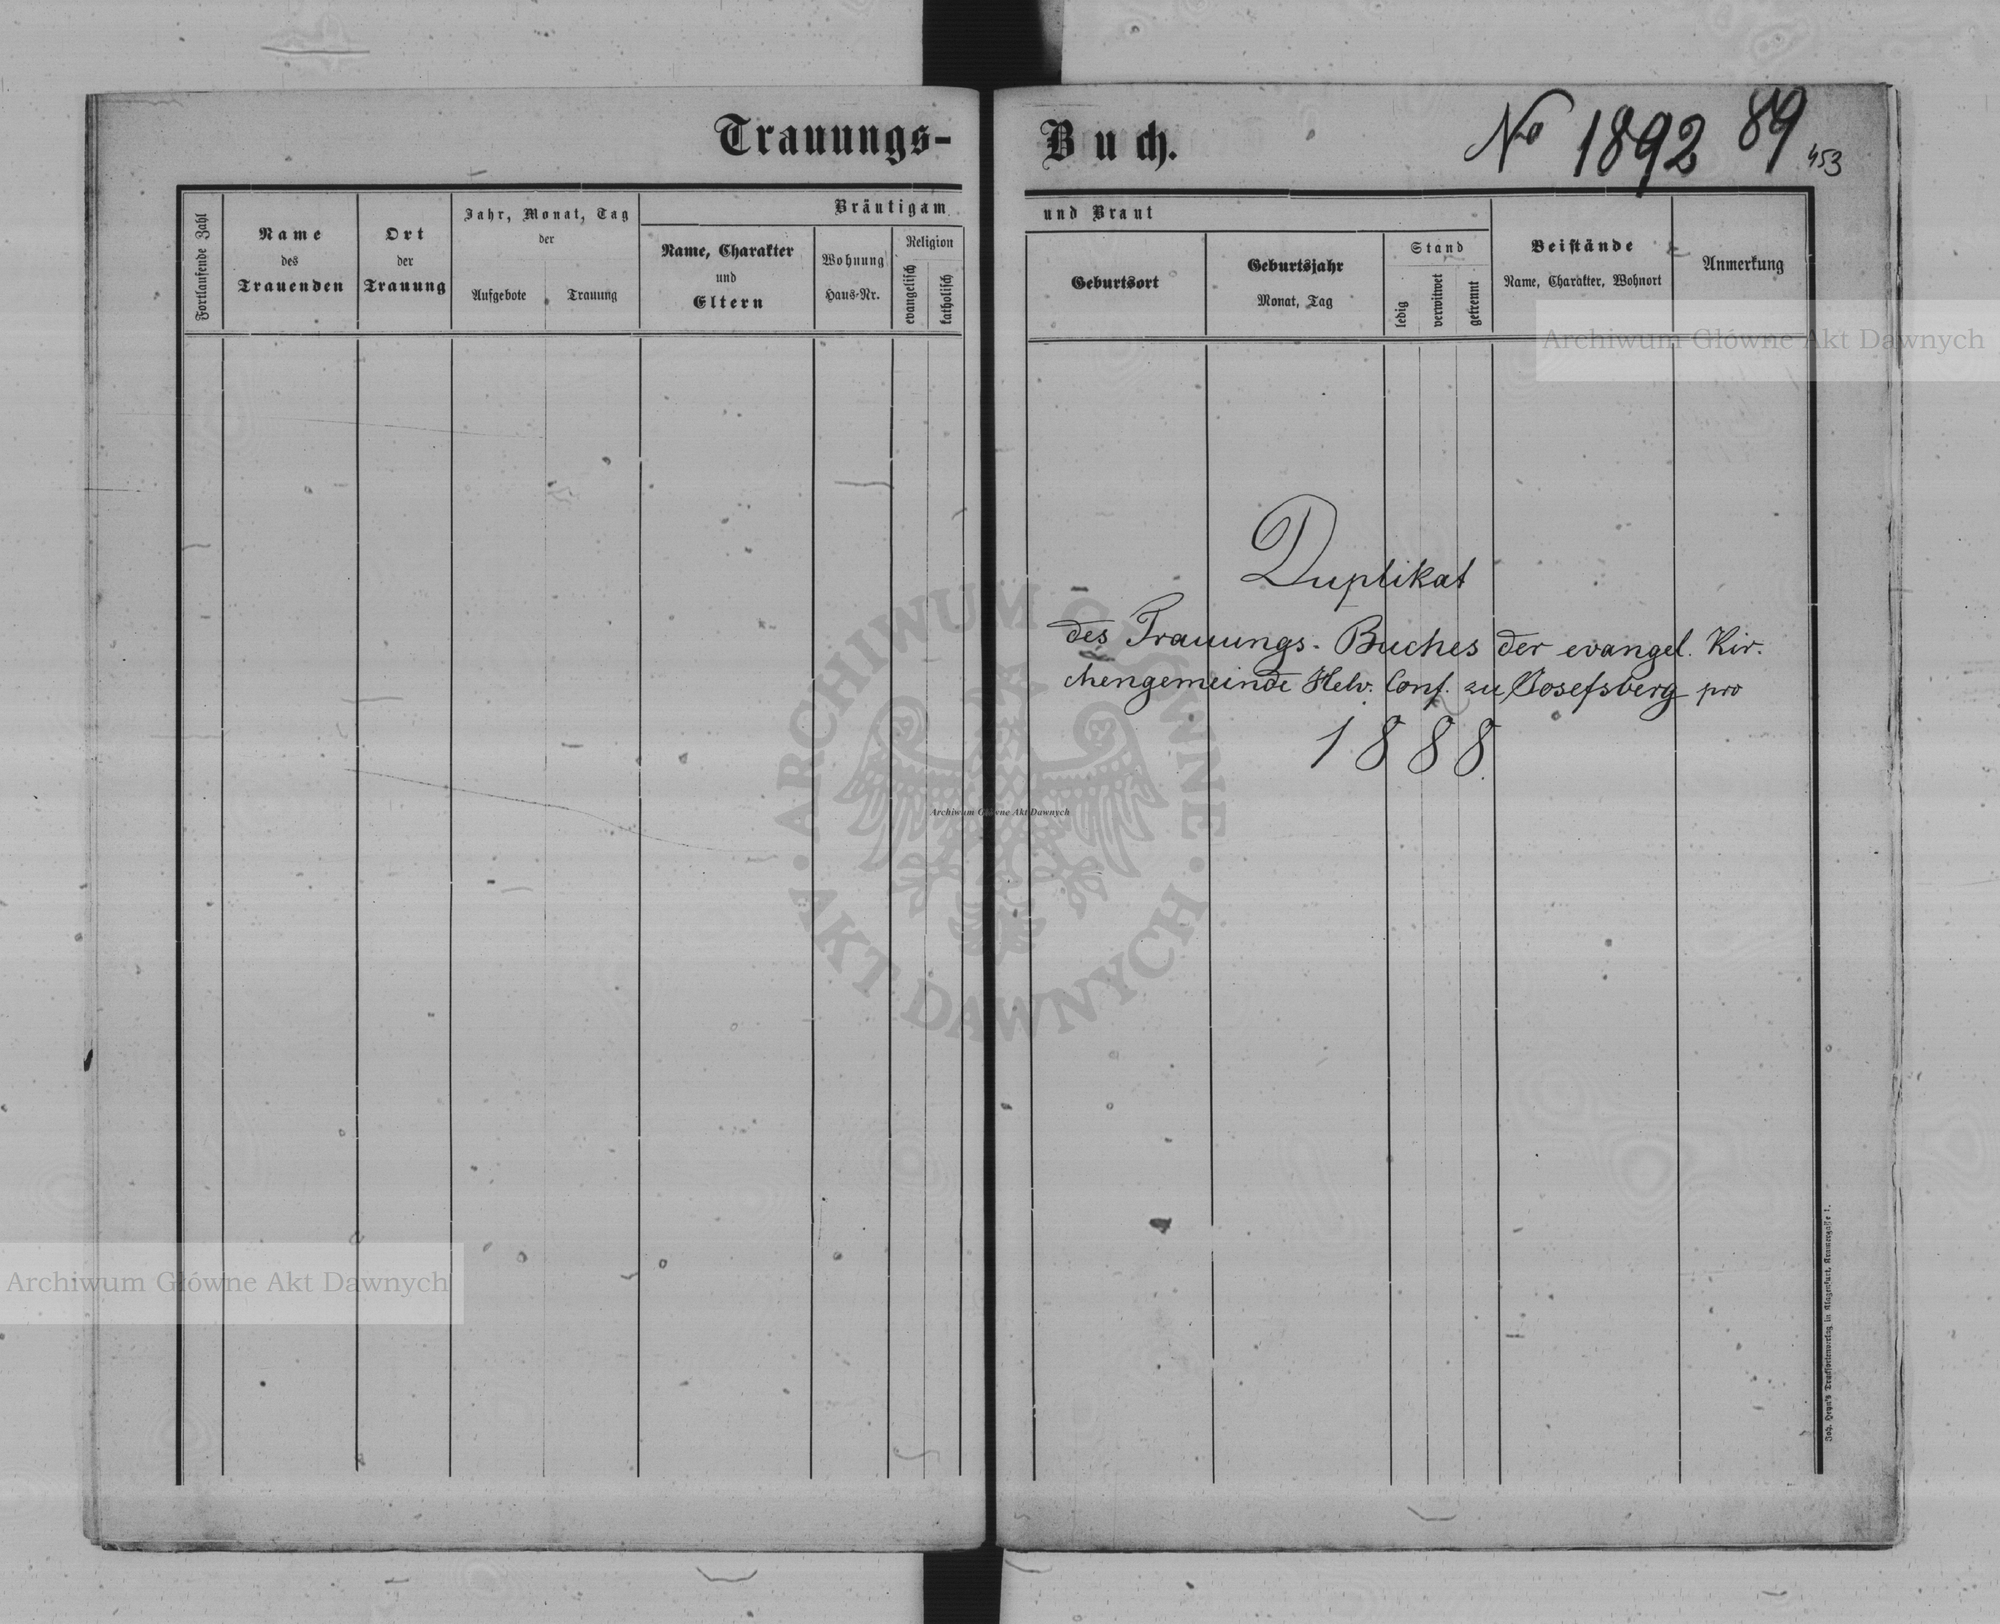 Trauungs-
Buch.
No 1892 89
453
Fortlaufende Zahl
Name
des
Trauenden
Ort
der
Trauung
Jahr, Monat, Tag
der
Aufgebote
Trauung
Bräutigam
Name, Charakter
und
Eltern
Wohnung
Haus-Nr.
Religion
evangelisch
katholisch
und Braut
Geburtsort
Geburtsjahr
Monat, Tag
Stand
ledig
verwitwet
getrennt
Beistände
Name, Charakter, Wohnort
Anmerkung
Archiwum Główne Akt Dawnych
Duplikat
des Trauungs-Buches der evangel. Kir-
chengemeinde Helv. Conf. zu Josefsberg pro
1888.
ARCHIWUM GŁÓWNE
AKT DAWNYCH
Archiwum Główne Akt Dawnych
Archiwum Główne Akt Dawnych
Joh. Heyn's Drucksortenverlag in Klagenfurt, Kramergasse 1.